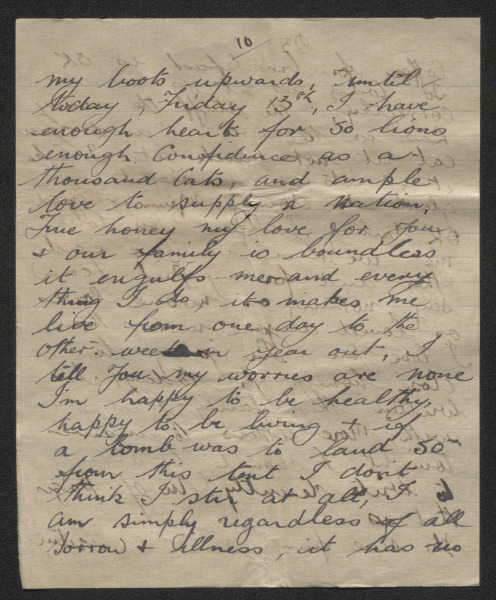 10
my boots upwards, until
today, Friday 13th, I have
enough heart for 50 lions
enough Confidence as a
thousand Cats, and ample
love to supply a Nation,
True honey my love for you
& our family is boundless
it engulfs me and every
thing I do its makes me
live from one day to the
other in year out, I
tell you my worries are none
I'm happy to be healthy,
happy to be living & if
a bomb was to land 50
from this tent I don't
think I stir at all, I
am simply regardless of all
Sorrow & illness, it has no